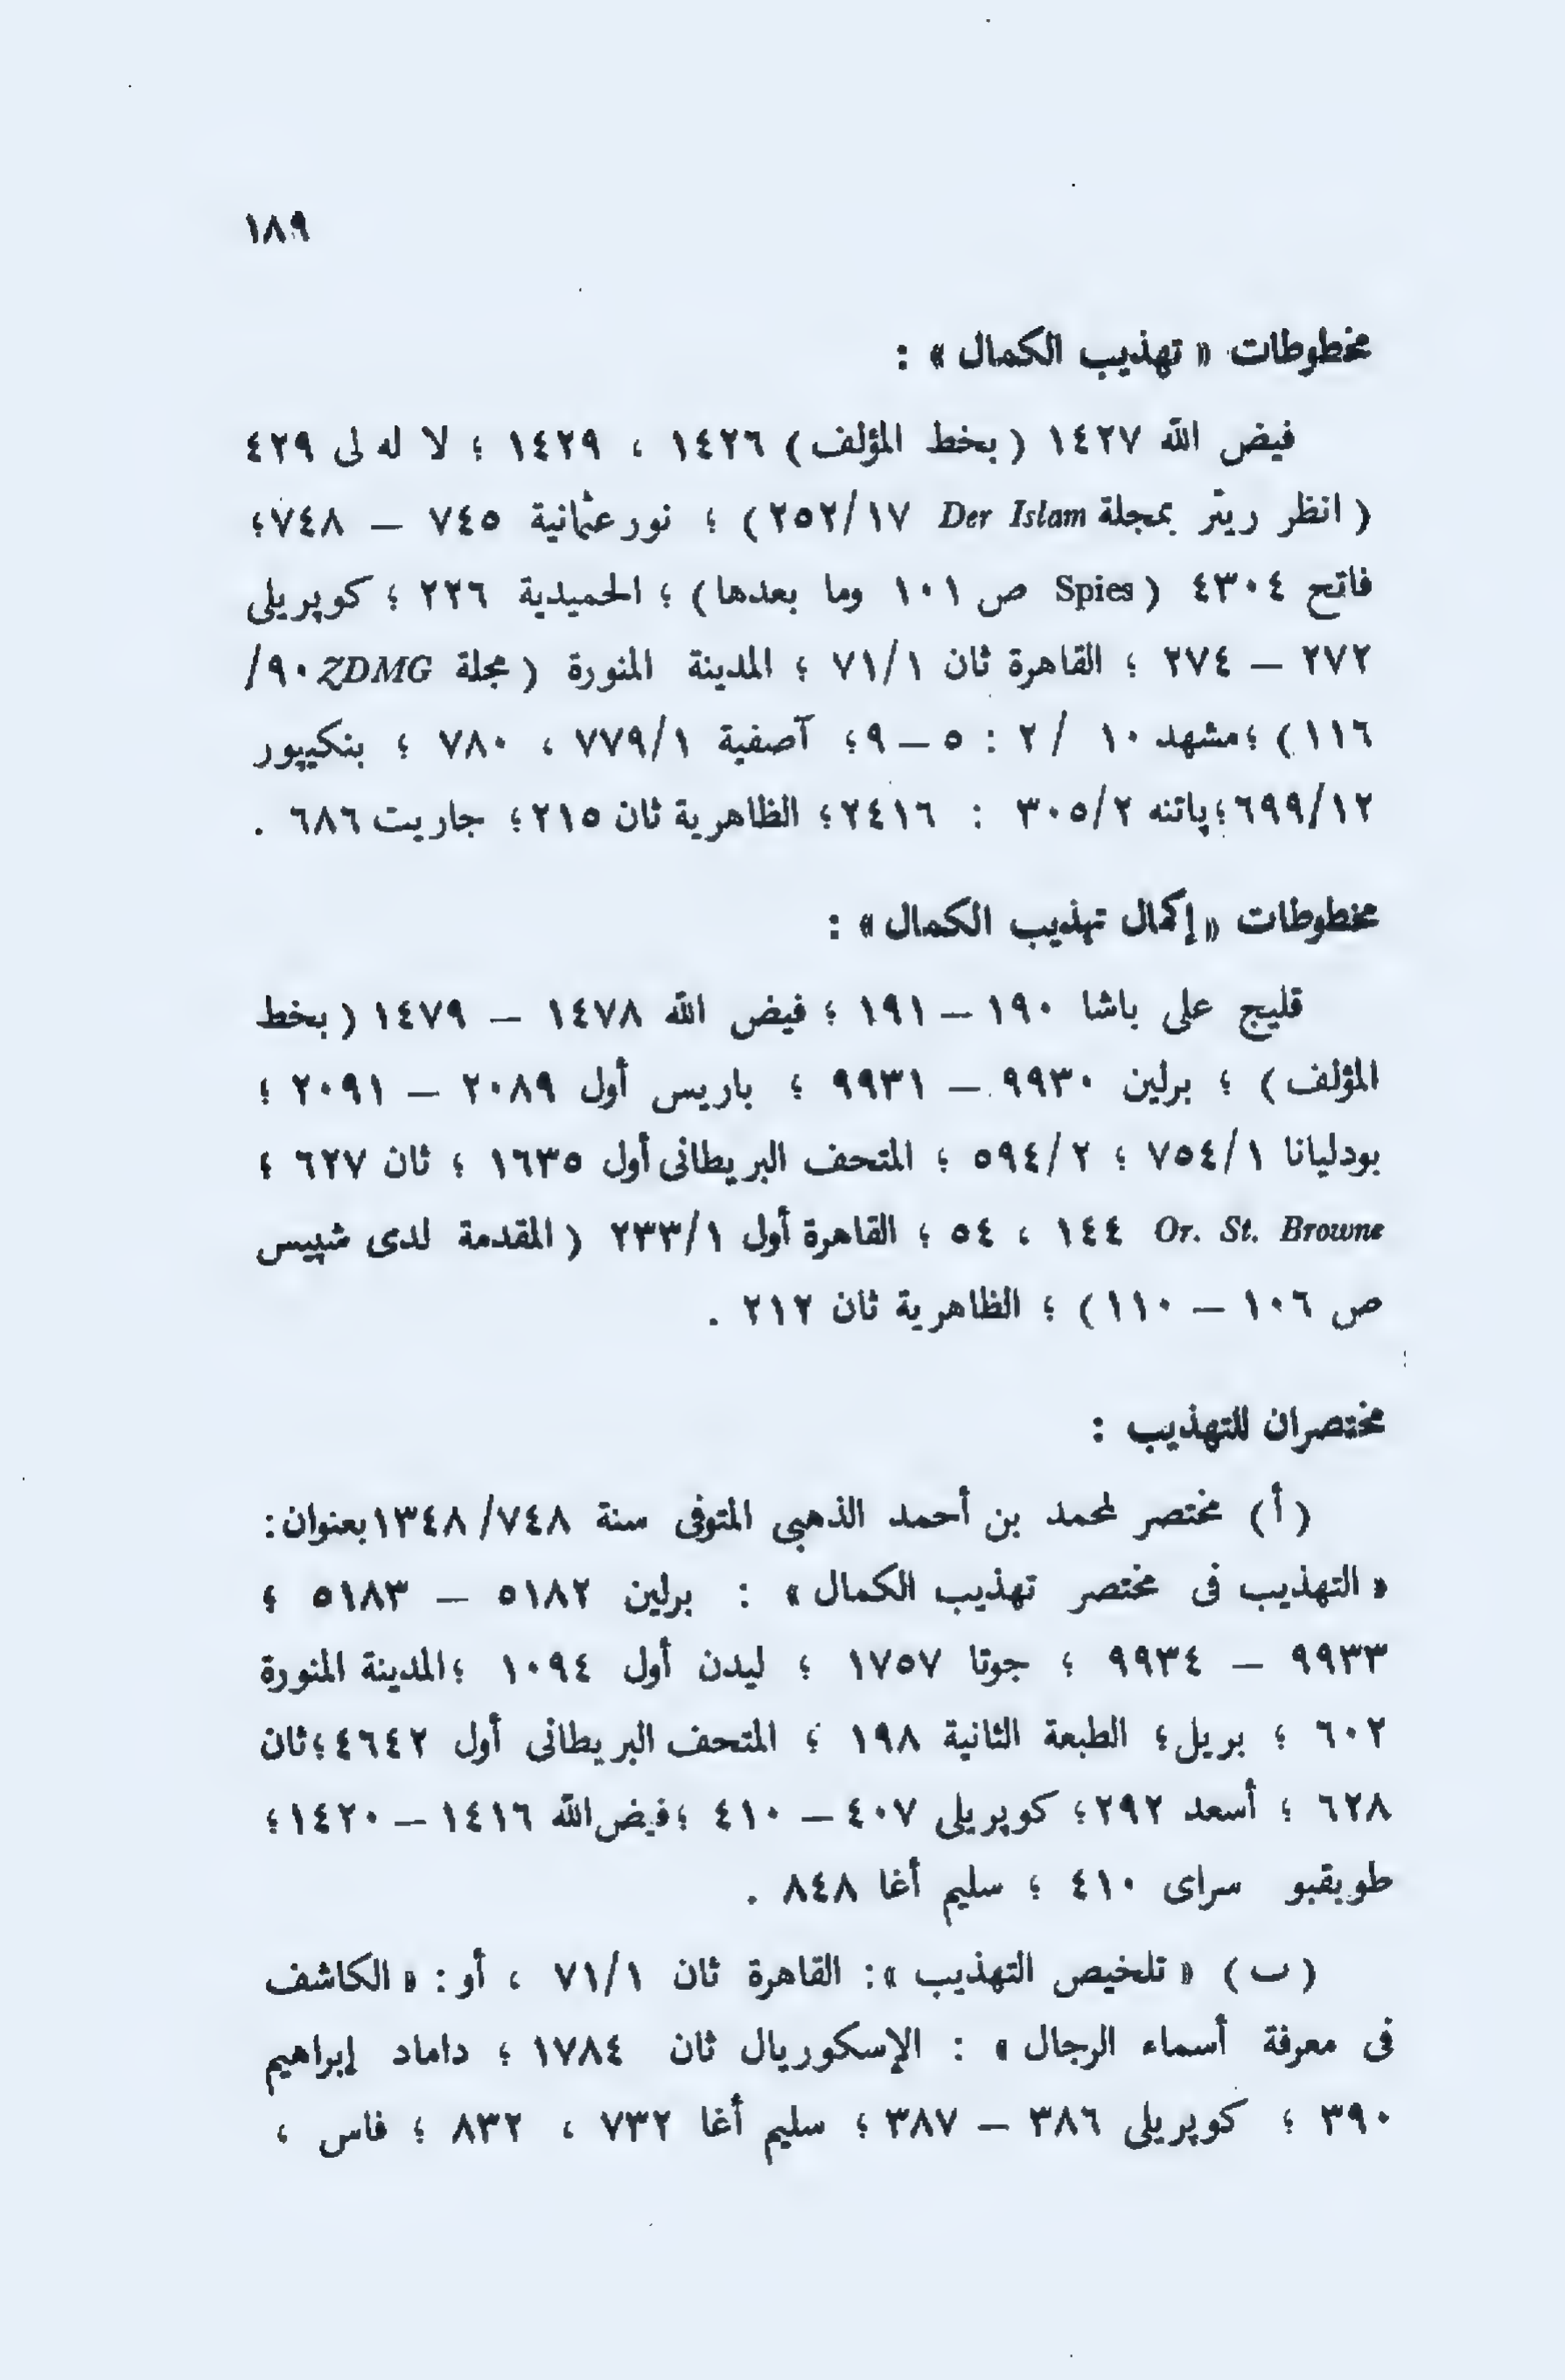 ١٨٩
مخطوطات « تهذيب الكمال » :
فيض الله ١٤٢٧ ( بخط المؤلف ) ١٤٢٦ ، ١٤٢٩ ؛ لا له لى ٤٢٩
( انظر ريتر بمجلة Der Islam ٢٥٢/١٧ ) ؛ نور عثمانية ٧٤٥ – ٧٤٨؛
فاتح ٤٣٠٤ ( Spies ص ١٠١ وما بعدها ) ؛ الحميدية ٢٢٦ ؛ كوپريلى
٢٧٢ – ٢٧٤ ؛ القاهرة ثان ٧١/١ ؛ المدينة المنورة ( مجلة ZDMG ٩٠/
١١٦ ) ؛ مشهد ١٠ /٢ : ٥ – ٩؛ آصفية ٧٧٩/١ ، ٧٨٠ ؛ بنكيپور
٦٩٩/١٢؛ پاتنه ٣٠٥/٢ : ٢٤١٦؛ الظاهرية ثان ٢١٥؛ جاريت ٦٨٦ .
مخطوطات « إكمال تهذيب الكمال » :
قليج على باشا ١٩٠ – ١٩١ ؛ فيض الله ١٤٧٨ – ١٤٧٩ ( بخط
المؤلف ) ؛ برلين ٩٩٣٠ – ٩٩٣١ ؛ باريس أول ٢٠٨٩ – ٢٠٩١ ؛
بودليانا ٧٥٤/١ ؛ ٥٩٤/٢ ؛ المتحف البريطانى أول ١٦٣٥ ؛ ثان ٦٢٧ ؛
Or. St. Browne ١٤٤ ، ٥٤ ؛ القاهرة أول ٢٣٣/١ ( المقدمة لدى شپيس
ص ١٠٦ – ١١٠ ) ؛ الظاهرية ثان ٢١٢ .
مختصران للتهذيب :
( أ ) مختصر لمحمد بن أحمد الذهبى المتوفى سنة ٧٤٨/ ١٣٤٨ بعنوان :
« التهذيب فى مختصر تهذيب الكمال » : برلين ٥١٨٢ – ٥١٨٣ ؛
٩٩٣٣ – ٩٩٣٤ ؛ جوتا ١٧٥٧ ؛ ليدن أول ١٠٩٤ ؛ المدينة المنورة
٦٠٢ ؛ بريل؛ الطبعة الثانية ١٩٨ ؛ المتحف البريطانى أول ٤٦٤٢؛ ثان
٦٢٨ ؛ أسعد ٢٩٢؛ كوپريلى ٤٠٧ – ٤١٠ ؛ فيض الله ١٤١٦ – ١٤٢٠؛
طوبقبو سراى ٤١٠ ؛ سليم أغا ٨٤٨ .
( ب ) « تلخيص التهذيب » : القاهرة ثان ٧١/١ ، أو : « الكاشف
فى معرفة أسماء الرجال » : الإسكوريال ثان ١٧٨٤ ؛ داماد إبراهيم
٣٩٠ ؛ كوپريلى ٣٨٦ – ٣٨٧ ؛ سليم أغا ٧٣٢ ، ٨٣٢ ؛ فاس ،